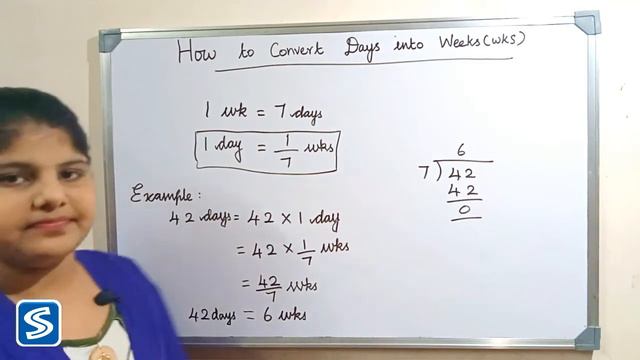 How to Convert Days into Weeks(wks)
1 wk = 7 days
1 day = 1/7 wks
Example:
42 days = 42 × 1 day
= 42 × 1/7 wks
= 42/7 wks
42 days = 6 wks
6
7) 42
42
0
S